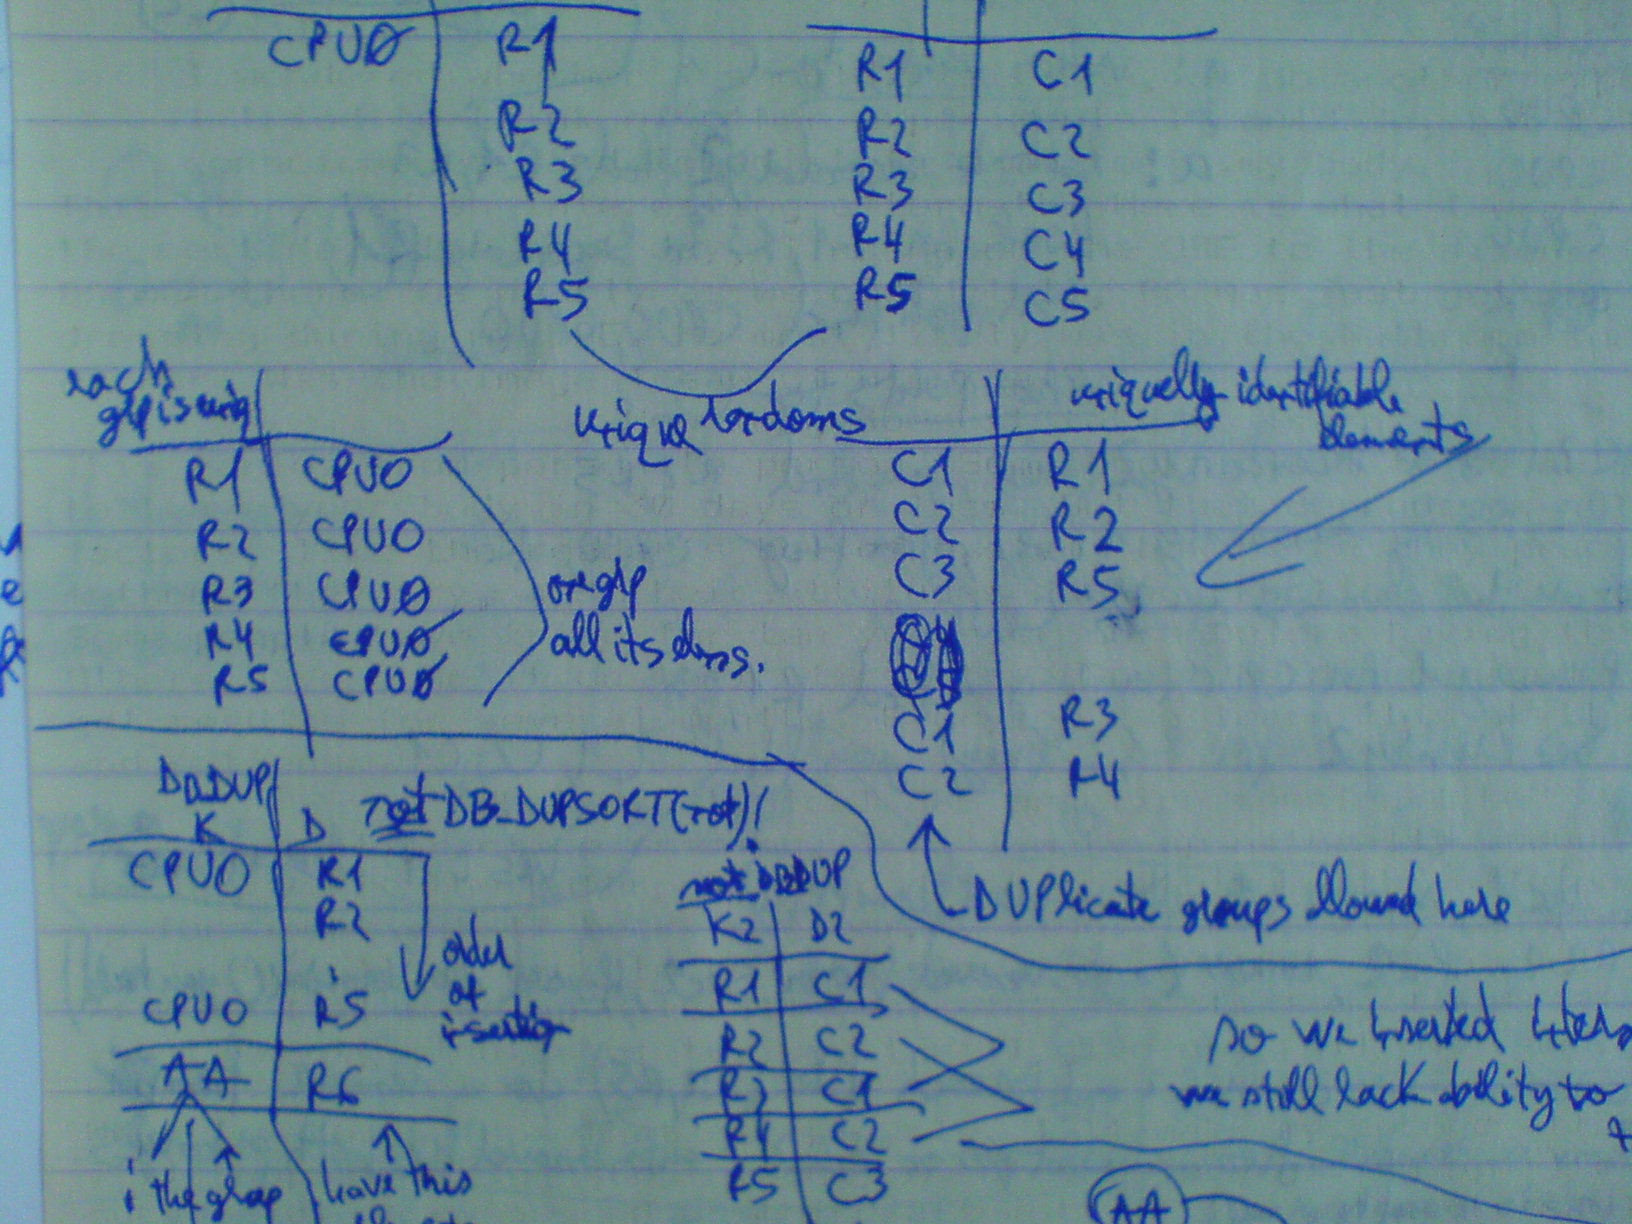 CPU0 R1
R2
R3
R4
R5
R1 C1
R2 C2
R3 C3
R4 C4
R5 C5
each
R1 CPU0
R2 CPU0
R3 CPU0
R4 CPU0
R5 CPU0
all its
unique randoms
uniquelly identifiable
elements
C1 R1
C2 R2
C3 R5
C1 R3
C2 R4
DUPlicate groups allowed here
DB_DUP
K D
not DB_DUPSORT(not)!
CPU0 R1
R2
CPU0 R5
AA R6
order
of
insertion
the group
have this
not DB_DUP
K2 D2
R1 C1
R2 C2
R3 C1
R4 C2
R5 C3
so we inserted
we still lack ability to
AA